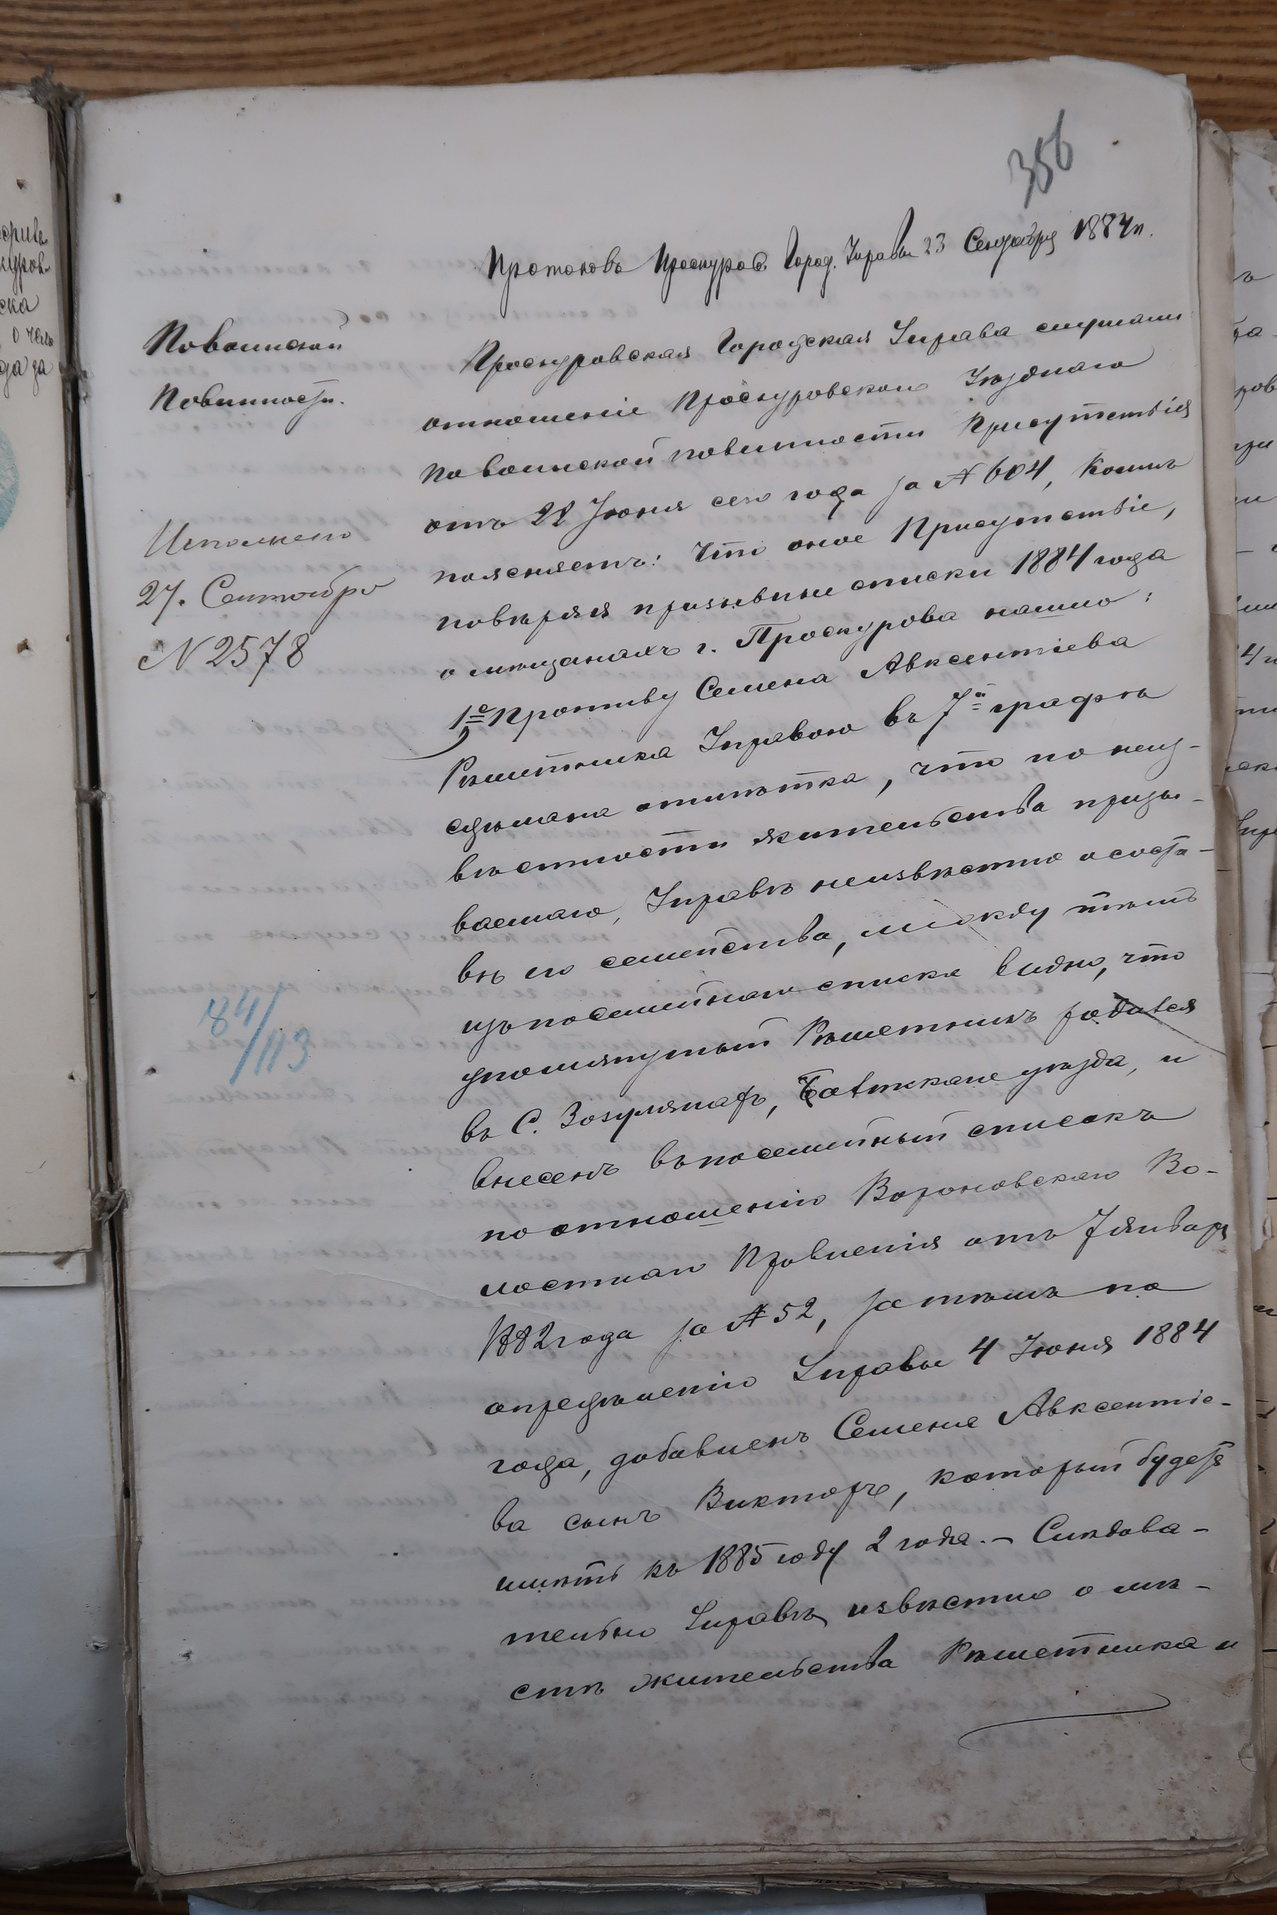 356
Протоколъ Проскуров. Город. Управы 23 Сентября 1884 г.
По воинской
Повинности.
Исполнено
27. Сентября
№ 2578
84/113
Проскуровская Городская Управа слушали
отношеніе Проскуровскаго Уѣзднаго
по воинской повинности Присутствія
отъ 28 Іюня сего года за № 604, коимъ
поясняетъ: что оное Присутствіе,
повѣряя призывные списки 1884 года
о мѣщанахъ г. Проскурова нашло:
1е Противу Семена Авксентіева
Рѣшетника Управою въ 7й графѣ
сдѣлана отмѣтка, что по неиз-
вѣстности жительства призы-
ваемаго, Управѣ неизвѣстно о соста-
вѣ его семейства, между тѣмъ
изъ посемейнаго списка видно, что
упомянутый Рѣшетникъ родился
въ С. Зозулинахъ, уѣзда, и
внесенъ въ посемейный списокъ
по отношенію Вороновскаго Во-
лостнаго Правленія отъ 7 Января
1882 года за № 52, затѣмъ по
опредѣленію Управы 4 Іюня 1884
года, добавленъ Семена Авксентіе-
ва сынъ Викторъ, который будетъ
имѣть къ 1885 году 2 года. – Слѣдова-
тельно Управѣ извѣстно о мѣ-
стѣ жительства Рѣшетника и